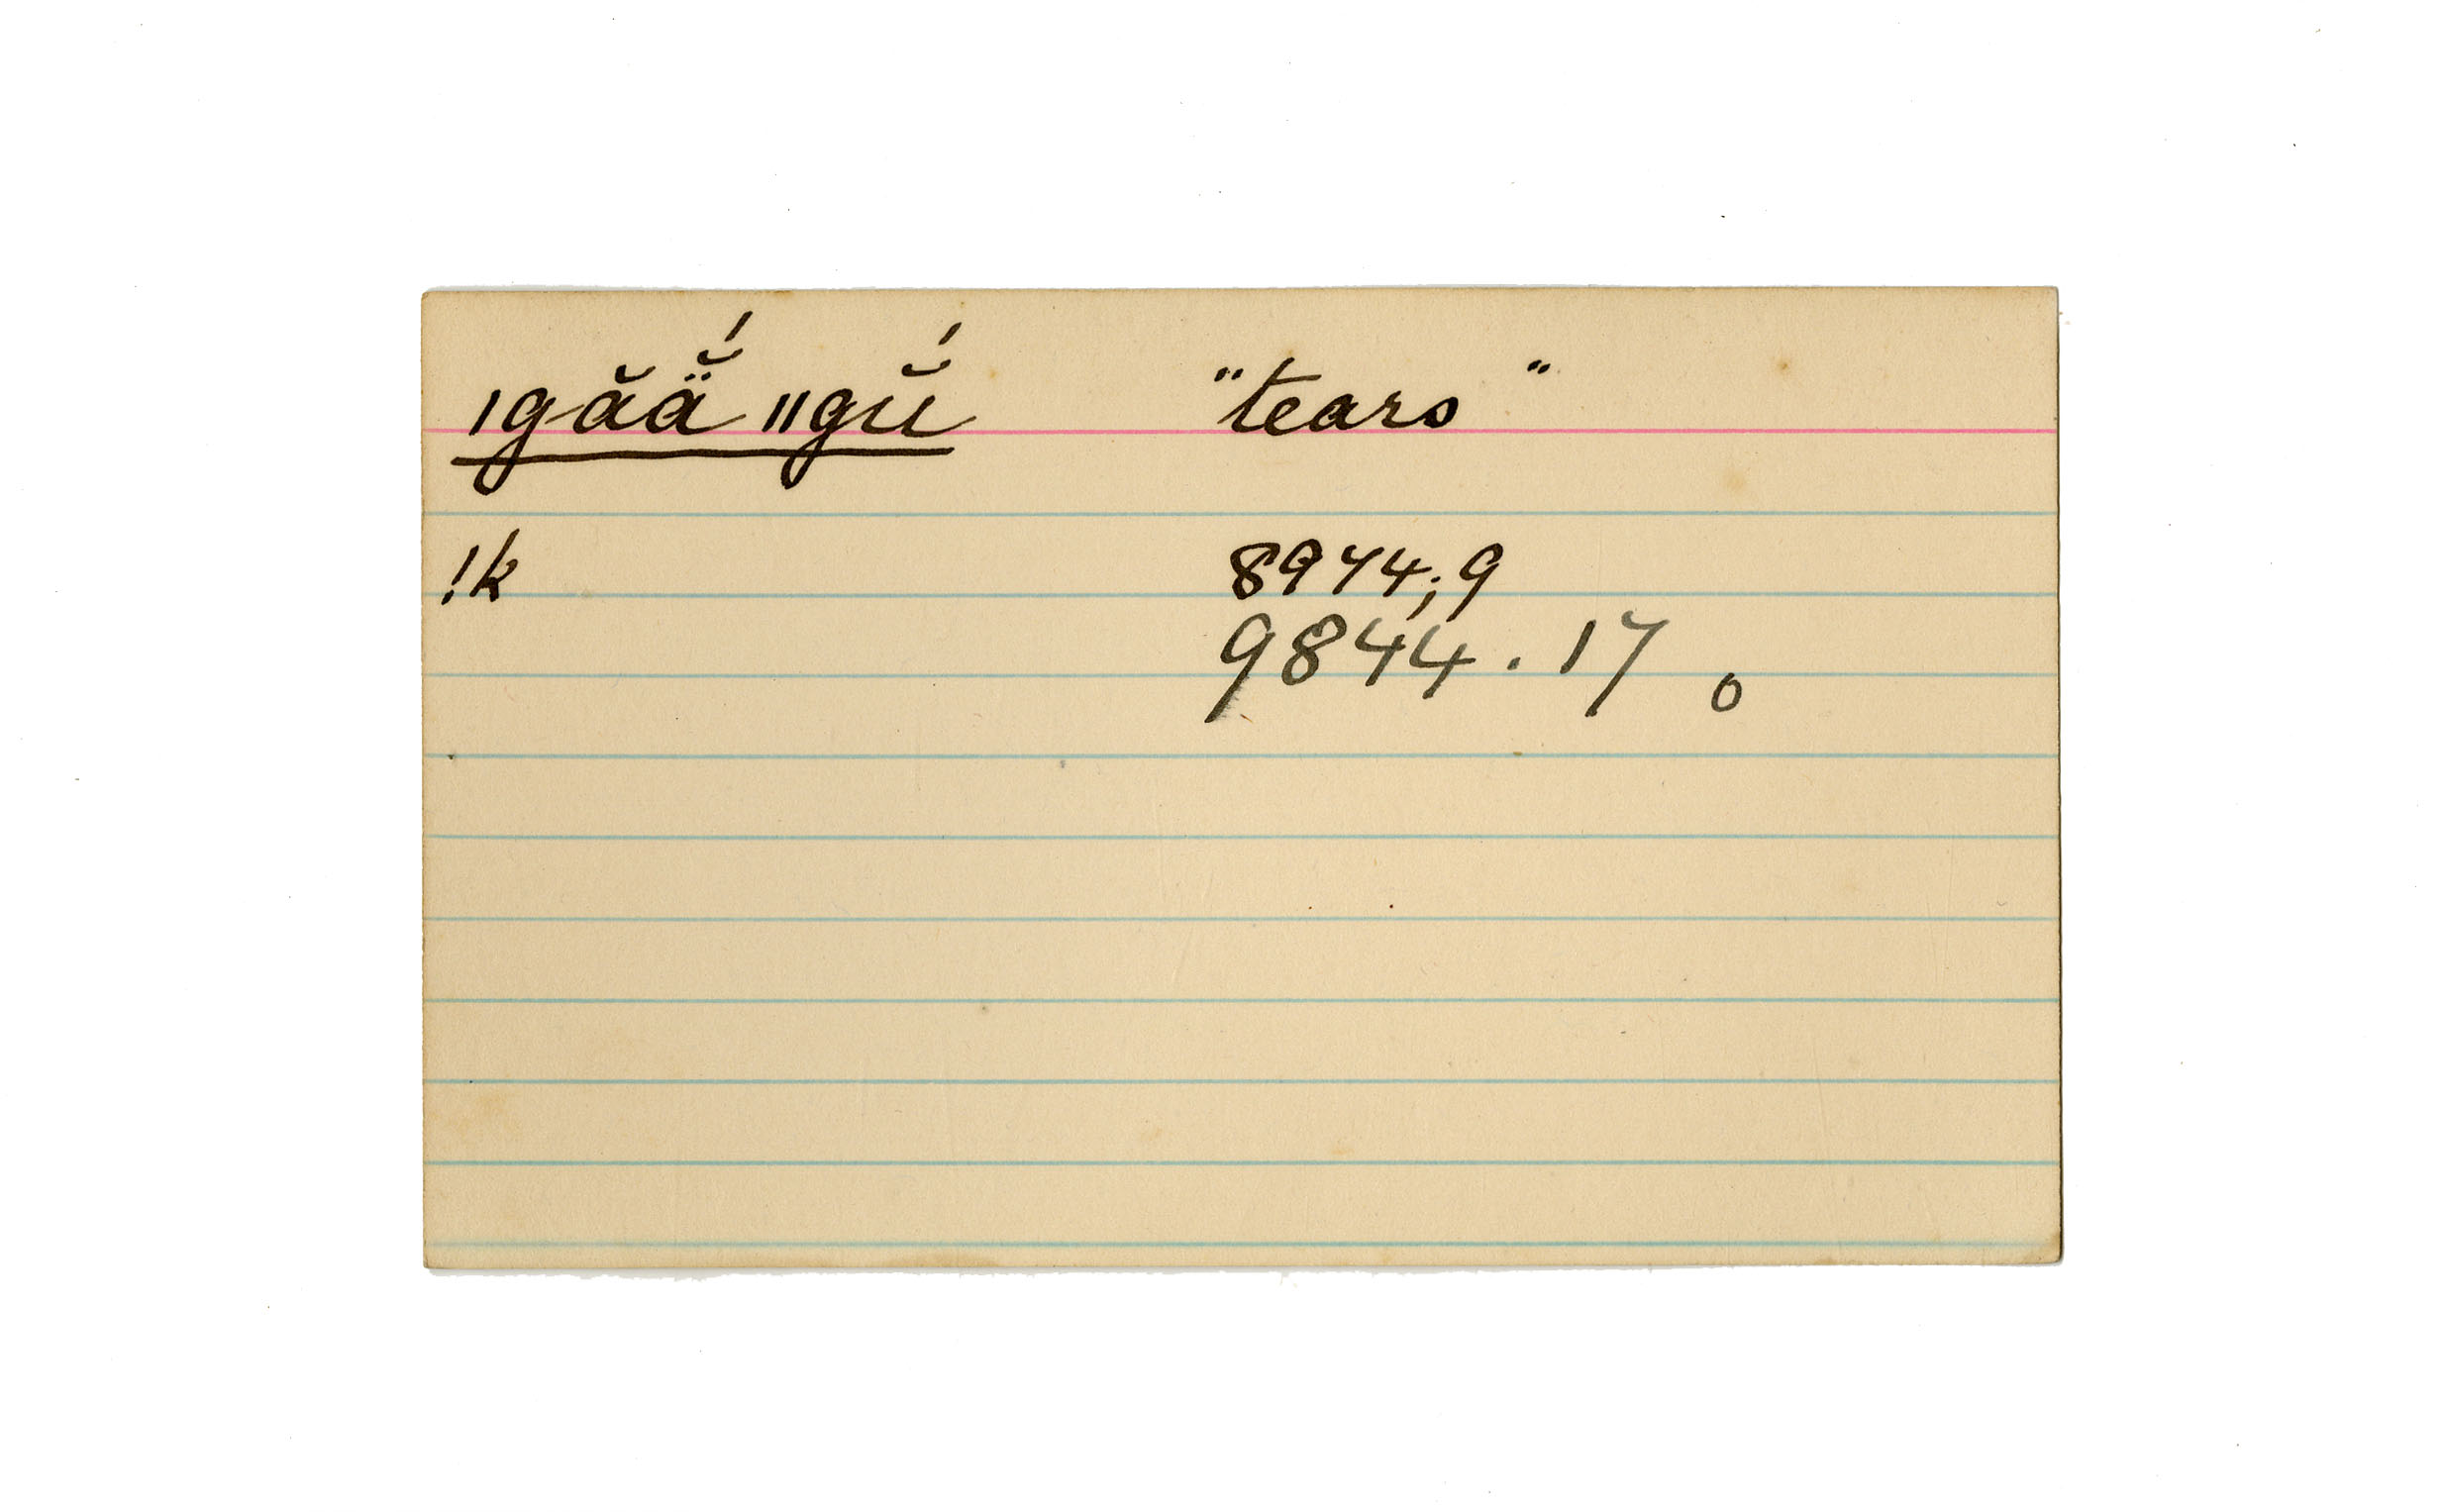 ǀgăä̆́ ǁgŭ́ "tears"
!k 8974;9
9844.17 o